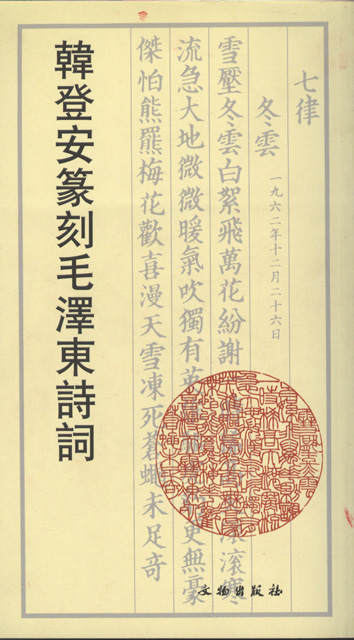 七律
冬雲
一九六二年十二月二十六日
雪壓冬雲白絮飛萬花紛謝滾滾寒
流急大地微微暖氣吹獨有英更無豪
傑怕熊羆梅花歡喜漫天雪凍死蒼蠅未足奇
韓登安篆刻毛澤東詩詞
文物出版社